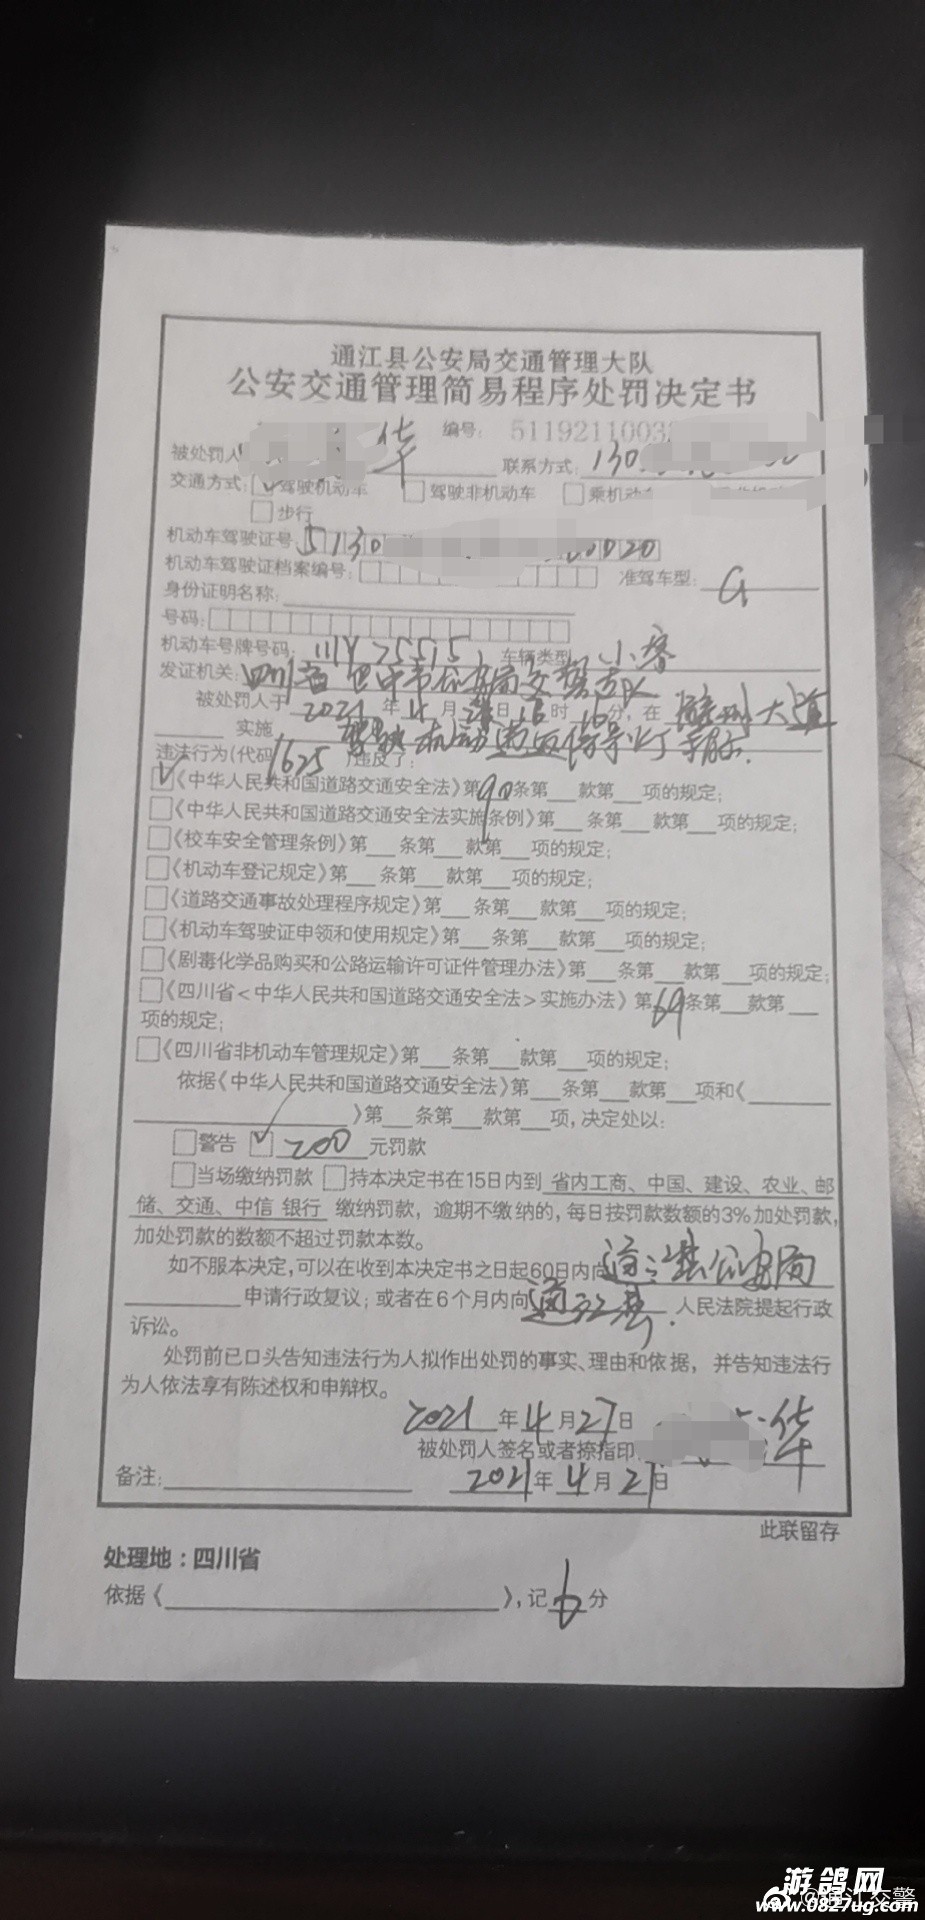 通江县公安局交通管理大队
公安交通管理简易程序处罚决定书
编号: 51192110032
被处罚人 华 联系方式: 130
交通方式: 驾驶机动车 驾驶非机动车 乘机动车
步行
机动车驾驶证号: 5130 0020
机动车驾驶证档案编号: 准驾车型:
身份证明名称:
号码:
机动车号牌号码: 川Y75515 车辆类型 小客
发证机关: 四川省巴中市公安局交警支队
被处罚人于 2021 年 4 月 日 16 时 16 分, 在 壁州大道
实施 驾驶机动车违反信号灯
违法行为(代码 1625 )违反了:
《中华人民共和国道路交通安全法》第90条第 款第 项的规定;
《中华人民共和国道路交通安全法实施条例》第 条第 款第 项的规定;
《校车安全管理条例》第 条第 款第 项的规定;
《机动车登记规定》第 条第 款第 项的规定;
《道路交通事故处理程序规定》第 条第 款第 项的规定;
《机动车驾驶证申领和使用规定》第 条第 款第 项的规定;
《剧毒化学品购买和公路运输许可证件管理办法》第 条第 款第 项的规定;
《四川省<中华人民共和国道路交通安全法>实施办法》第69条第 款第
项的规定;
《四川省非机动车管理规定》第 条第 款第 项的规定;
依据《中华人民共和国道路交通安全法》第 条第 款第 项和《
》第 条第 款第 项, 决定处以:
警告 200 元罚款
当场缴纳罚款 持本决定书在15日内到 省内工商、中国、建设、农业、邮
储、交通、中信 银行 缴纳罚款, 逾期不缴纳的, 每日按罚款数额的3%加处罚款,
加处罚款的数额不超过罚款本数。
如不服本决定, 可以在收到本决定书之日起60日内向 通江县公安局
申请行政复议; 或者在6个月内向 通江县 人民法院提起行政
诉讼。
处罚前已口头告知违法行为人拟作出处罚的事实、理由和依据, 并告知违法行
为人依法享有陈述权和申辩权。
2021 年 4 月 27 日
被处罚人签名或者捺指印 华
备注: 2021 年 4 月 27 日
此联留存
处理地:四川省
依据《 》, 记 6 分
游鸽网
@通江交警
www.0827ug.com